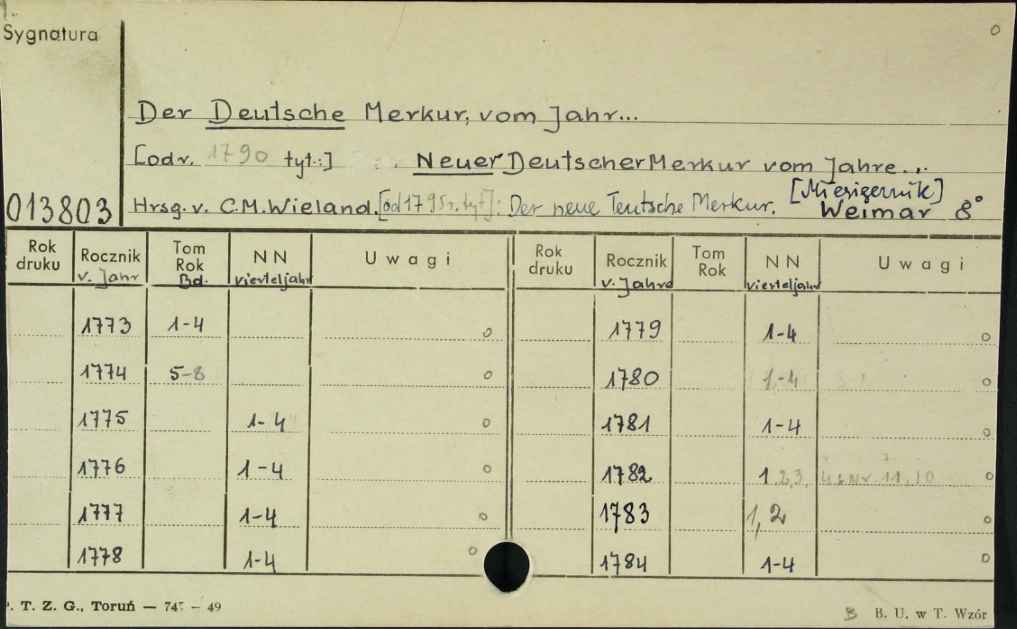 Sygnatura
Der Deutsche Merkur, vom Jahr...
[od r. 1790 tyt.:] Neuer Deutscher Merkur vom Jahre...
[Miesięcznik]
013803 Hrsg. v. C.M. Wieland. [od 1795 r. tyt]: Der neue Teutsche Merkur. Weimar 8°
Rok druku Rocznik v. Jahr Tom Rok Bd. NN vierteljahr Uwagi Rok druku Rocznik v. Jahre Tom Rok NN vierteljahr Uwagi
1773 1-4 1779 1-4
1774 5-8 1780 1-4
1775 1-4 1781 1-4
1776 1-4 1782 1 2, 3,
1777 1-4 1783 1, 2
1778 1-4 1784 1-4
P. T. Z. G., Toruń — 49 B. U. w T. Wzór